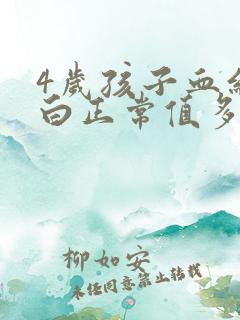 4岁孩子血红
白正常值多
柳如安
未经同意禁止转载